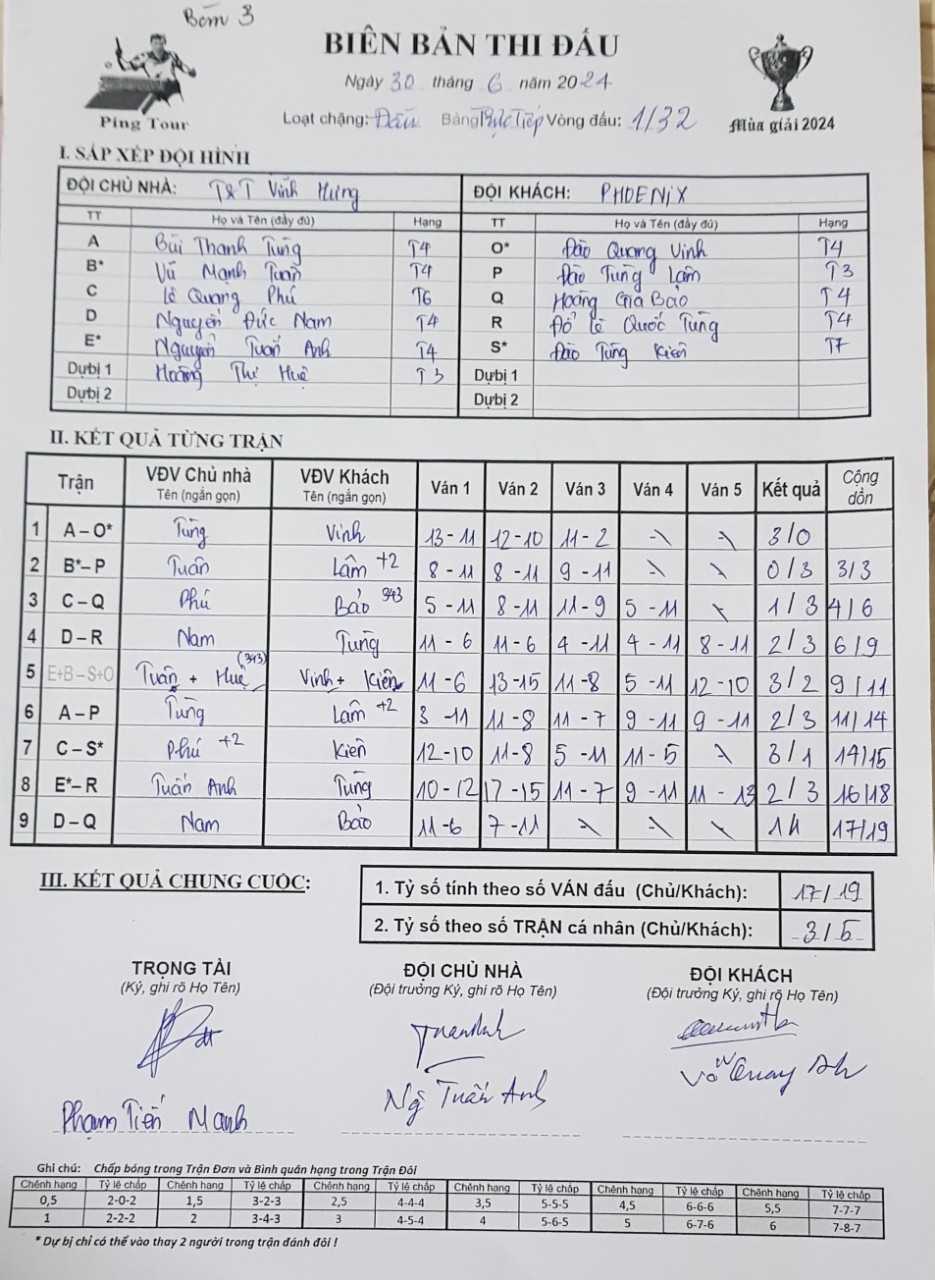 Bom 3
BIÊN BẢN THI ĐẤU
Ngày 30 tháng 6 năm 2024
Ping Tour
Loạt chặng: Đấu Bảng Trực Tiếp Vòng đấu: 1/32
Mùa giải 2024
I. SẮP XẾP ĐỘI HÌNH
ĐỘI CHỦ NHÀ: T&T Vĩnh Hưng ĐỘI KHÁCH: PHOENIX
TT Họ và Tên (đầy đủ) Hạng TT Họ và Tên (đầy đủ) Hạng
A Bùi Thanh Tùng T4 O* Đào Quang Vinh T4
B* Vũ Mạnh Tuấn T4 P Đào Tùng Lâm T3
C Lê Quang Phú T6 Q Hoàng Gia Bảo T4
D Nguyễn Đức Nam T4 R Đỗ Lê Quốc Tùng T4
E* Nguyễn Tuấn Anh T4 S* Đào Tùng Kiên T7
Dự bị 1 Hoàng Thị Huệ T3 Dự bị 1
Dự bị 2 Dự bị 2
II. KẾT QUẢ TỪNG TRẬN
Trận VĐV Chủ nhà Tên (ngắn gọn) VĐV Khách Tên (ngắn gọn) Ván 1 Ván 2 Ván 3 Ván 4 Ván 5 Kết quả Cộng dồn
1 A – O* Tùng Vinh 13 - 11 12 - 10 11 - 2 3/0
2 B* – P Tuấn Lâm +2 8 - 11 8 - 11 9 - 11 0/3 3/3
3 C – Q Phú Bảo 343 5 - 11 8 - 11 11 - 9 5 - 11 1/3 4/6
4 D – R Nam Tùng 11 - 6 11 - 6 4 - 11 4 - 11 8 - 11 2/3 6/9
5 E+B – S+O Tuấn + Huệ (343) Vinh + Kiên 11 - 6 13 - 15 11 - 8 5 - 11 12 - 10 3/2 9/11
6 A – P Tùng Lâm +2 3 - 11 11 - 8 11 - 7 9 - 11 9 - 11 2/3 11/14
7 C – S* Phú +2 Kiên 12 - 10 11 - 8 5 - 11 11 - 5 3/1 14/15
8 E* – R Tuấn Anh Tùng 10 - 12 17 - 15 11 - 7 9 - 11 11 - 13 2/3 16/18
9 D – Q Nam Bảo 11 - 6 7 - 11 1/1 17/19
III. KẾT QUẢ CHUNG CUỘC:
1. Tỷ số tính theo số VÁN đấu (Chủ/Khách): 17/19
2. Tỷ số theo số TRẬN cá nhân (Chủ/Khách): 3/5
TRỌNG TÀI ĐỘI CHỦ NHÀ ĐỘI KHÁCH
(Ký, ghi rõ Họ Tên) (Đội trưởng Ký, ghi rõ Họ Tên) (Đội trưởng Ký, ghi rõ Họ Tên)
Tuananh
Phạm Tiến Mạnh Ng Tuấn Anh
Ghi chú: Chấp bóng trong Trận Đơn và Bình quân hạng trong Trận Đôi
Chênh hạng Tỷ lệ chấp Chênh hạng Tỷ lệ chấp Chênh hạng Tỷ lệ chấp Chênh hạng Tỷ lệ chấp Chênh hạng Tỷ lệ chấp Chênh hạng Tỷ lệ chấp
0,5 2-0-2 1,5 3-2-3 2,5 4-4-4 3,5 5-5-5 4,5 6-6-6 5,5 7-7-7
1 2-2-2 2 3-4-3 3 4-5-4 4 5-6-5 5 6-7-6 6 7-8-7
* Dự bị chỉ có thể vào thay 2 người trong trận đánh đôi !